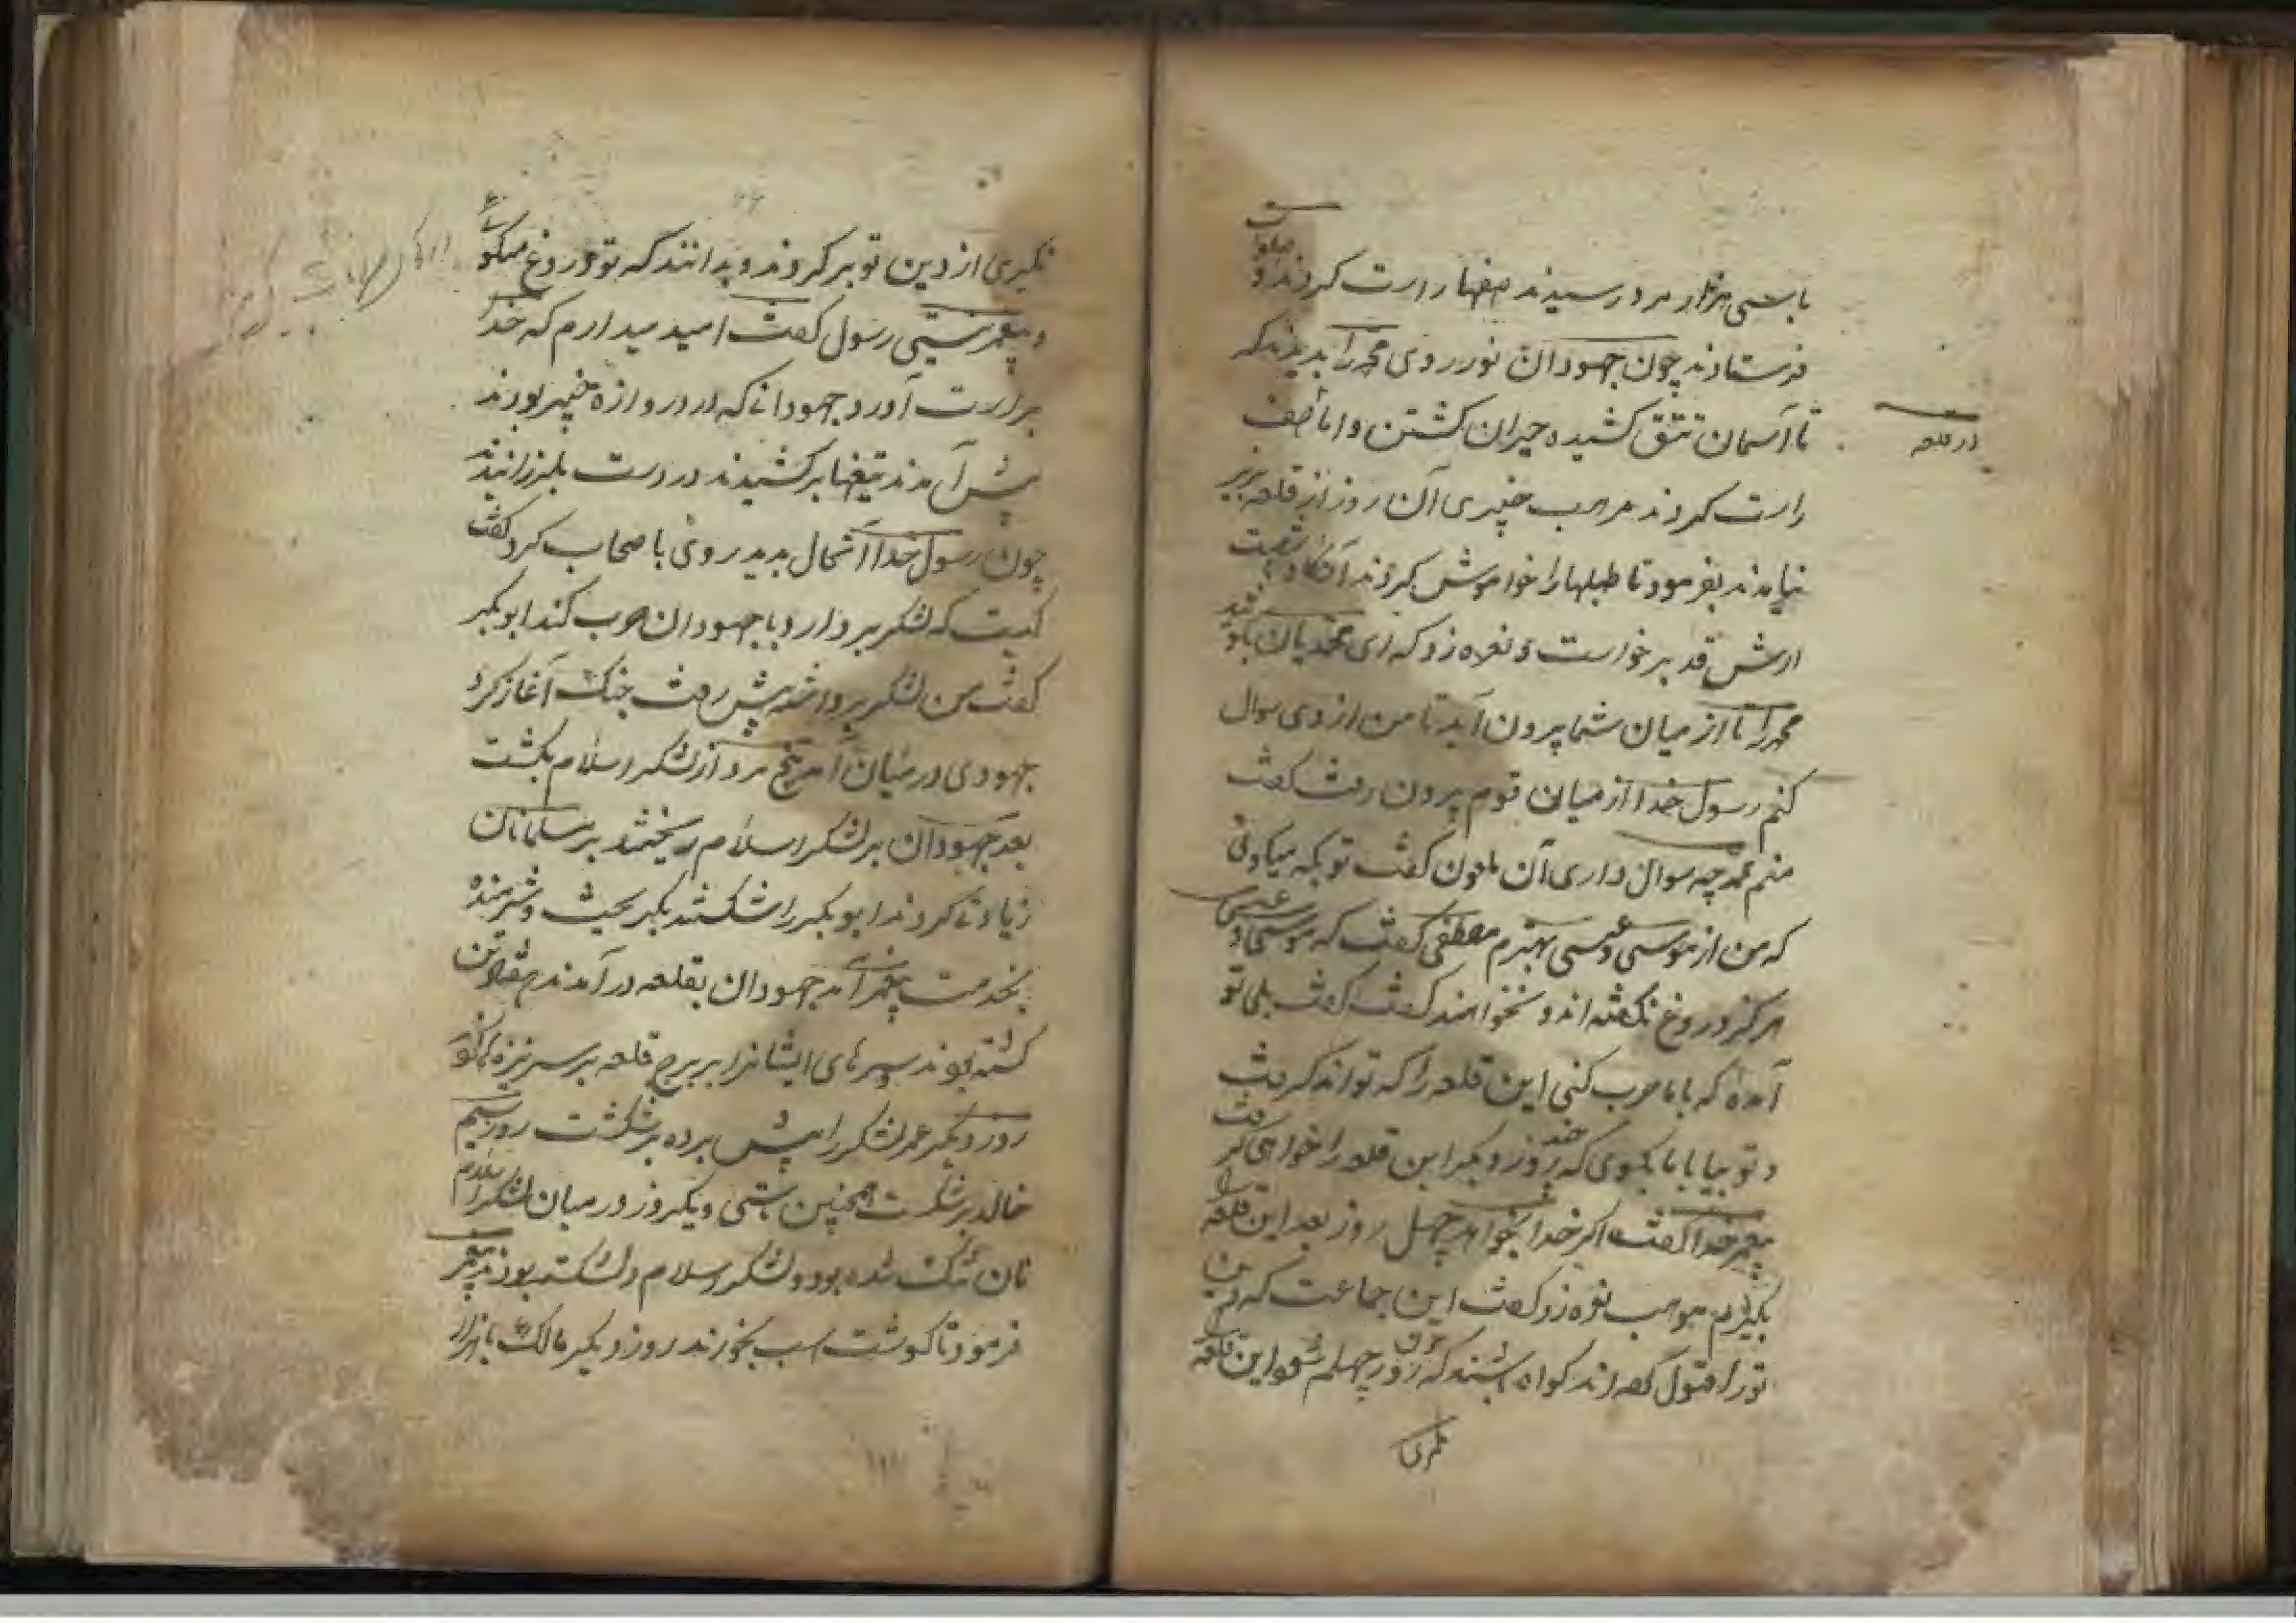 با سی هزار مرد رسیدند صفها راست کردند و صلوات
فرستادند چون جهودان نور روی محمد را بدیدند که
تا آسمان تتق کشیده حیران کشتن و اما صف
راست کردند مرحب خیبری آن روز از قلعه بزیر
نیامدند بفرمود تا طبلها را خاموش کردند آنکاه شصت
ارش قد برخواست و نعره زد که ای محمدیان بکوئید
محمد را تا از میان شما بیرون آید تا من از وی سوال
کنم رسول خدا از میان قوم بیرون رفت کفت
منم محمد چه سوال داری آن ملعون کفت تو بکه میکوئی
که من از موسی و عیسی بهترم مصطفی کفت که موسی و عیسی
هرکز دروغ نکفته اند و نخواهند کفت کفت بلی تو
آمدهٔ که با ما حرب کنی این قلعه را که تواند کرفت
و تو بیا با ما بکوی که چند روز دیکر این قلعه را خواهی کرفت
پیغمبر خدا کفت اکر خدا بخواهد چهل روز بعد این قلعه را
بکیرم مرحب نعره زد کفت این جماعت که دین
تو را قبول کرده اند کواه باشند که چون روز چهلم شود این قلعه
نکیری
در قلعه
نکیری از دین تو بر کردند و بدانند که تو دروغ میکوئی
و پیغمبر نیستی رسول کفت امید میدارم که خدا
براست آورد جهودانی که در دروازه خیبر بودند
پیش آمدند تیغها برکشیدند در دست بلرزانیدند
چون رسول خدا آنحال بدید روی باصحاب کرد کفت
کیست که لشکر بردارد و با جهودان حرب کند ابوبکر
کفت من لشکر برداشته پیش رفت جنک آغاز کرد
جهودی در میان آمد پنج مرد از لشکر اسلام بکشت
بعد جهودان بر لشکر اسلام ریختند بر مسلمانان
زیادتی کردند ابوبکر را شکستند بکریخت و شرمنده
بخدمت پیغمبر آمد جهودان بقلعه در آمدند هفتاد تن
کشته بودند سرهای ایشانرا بر برج قلعه بر سر نیزه کردند
روز دیکر عمر لشکر را پیش برده برشکست روز سیم
خالد برشکست همچنین تا سی و یکروز در میان لشکر اسلام
نان تنک شده بود و لشکر اسلام دلشکسته بودند پیغمبر
فرمود تا کوشت اسب بخورند روز دیکر مالک با هزار